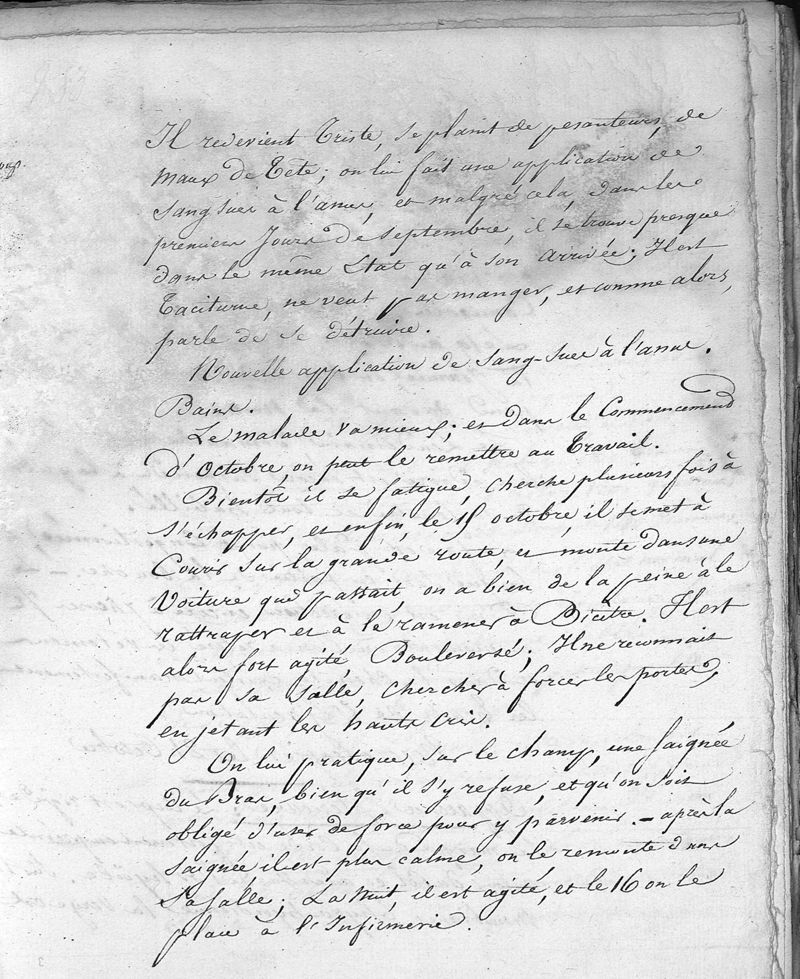 Il redevient triste, se plaint de pesanteurs, de
maux de tete; on lui fait une application de
sangsues à l'anus, et malgré cela, dans les
premiers jours de septembre, il se trouve presque
dans le même état qu'à son arrivée; Il est
taciturne, ne veut pas manger, et comme alors,
parle de se détruire.
Nouvelle application de sang-sues à l'anus.
Bains.
Le malade va mieux; et dans le Commencement
d'octobre, on peut le remettre au travail.
Bientôt il se fatigue, cherche plusieurs fois à
s'échapper, et enfin, le 15 octobre, il se met à
Courir sur la grande route, et monte dans une
Voiture qui passait, on a bien de la peine à le
rattraper et à le ramener à Bicêtre. Il est
alors fort agité, Bouleversé; Il ne reconnait
pas sa salle, cherche à forcer les portes,
en jetant les hauts cris.
On lui pratique, sur le champ, une saignée
du Bras, bien qu'il s'y refuse, et qu'on soit
obligé d'user de force pour y parvenir. - après la
saignée il est plus calme, on le remonte dans
sa salle; La nuit, il est agité, et le 16 on le
place à l'Infirmerie.